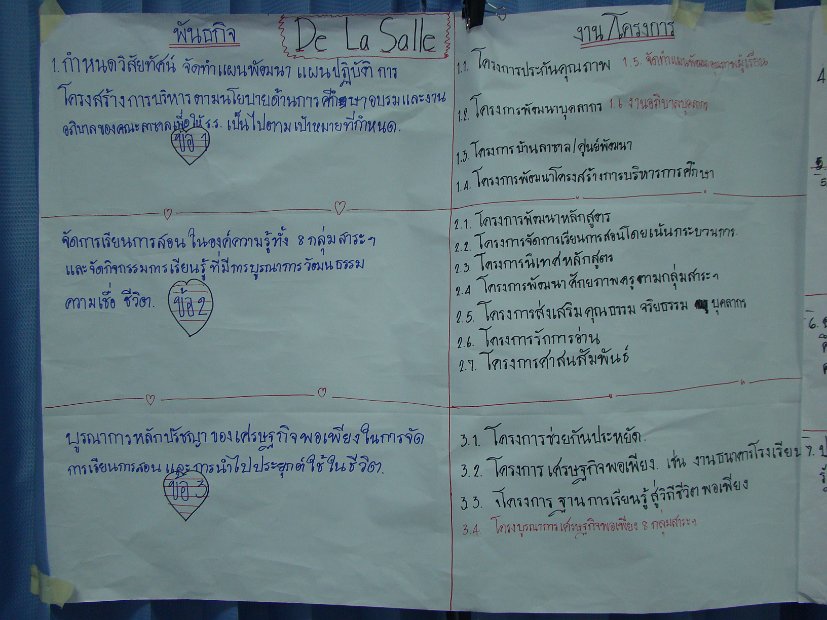 พันธกิจ
De La Salle
1. กำหนดวิสัยทัศน์ จัดทำแผนพัฒนา แผนปฏิบัติ การ
โครงสร้างการบริหารตามนโยบายด้านการศึกษาอบรมและงาน
อภิบาลของคณะลาซาลเพื่อให้ ร.ร. เป็นไปตามเป้าหมายที่กำหนด.
ข้อ 1
จัดการเรียนการสอน ในองค์ความรู้ทั้ง 8 กลุ่มสาระฯ
และจัดกิจกรรมการเรียนรู้ ที่มีการบูรณาการวัฒนธรรม
ความเชื่อ ชีวิต.
ข้อ 2
บูรณาการหลักปรัชญาของเศรษฐกิจพอเพียงในการจัด
การเรียนการสอน และการนำไปประยุกต์ใช้ในชีวิต.
ข้อ 3
งาน/โครงการ
1.1. โครงการประกันคุณภาพ 1.5. จัดทำแผนพัฒนาคุณภาพผู้เรียน
1.2. โครงการพัฒนาบุคลากร 1.6 งานอภิบาลบุคลากร
1.3. โครงการบ้านลาซาล/ศูนย์พัฒนา
1.4. โครงการพัฒนาโครงสร้างการบริหารการศึกษา
2.1. โครงการพัฒนาหลักสูตร
2.2. โครงการจัดการเรียนการสอนโดยเน้นกระบวนการ
2.3 โครงการนิเทศหลักสูตร
2.4 โครงการพัฒนาศักยภาพครูตามกลุ่มสาระฯ
2.5. โครงการส่งเสริมคุณธรรม จริยธรรม บุคลากร
2.6. โครงการรักการอ่าน
2.7. โครงการศาสนสัมพันธ์
3.1. โครงการช่วยกันประหยัด.
3.2. โครงการเศรษฐกิจพอเพียง. เช่น งานธนาคารโรงเรียน
3.3. โครงการ ฐานการเรียนรู้ สู่วิถีชีวิตพอเพียง
3.4. โครงบูรณาการเศรษฐกิจพอเพียง 8 กลุ่มสาระฯ
4
5
6.
7.